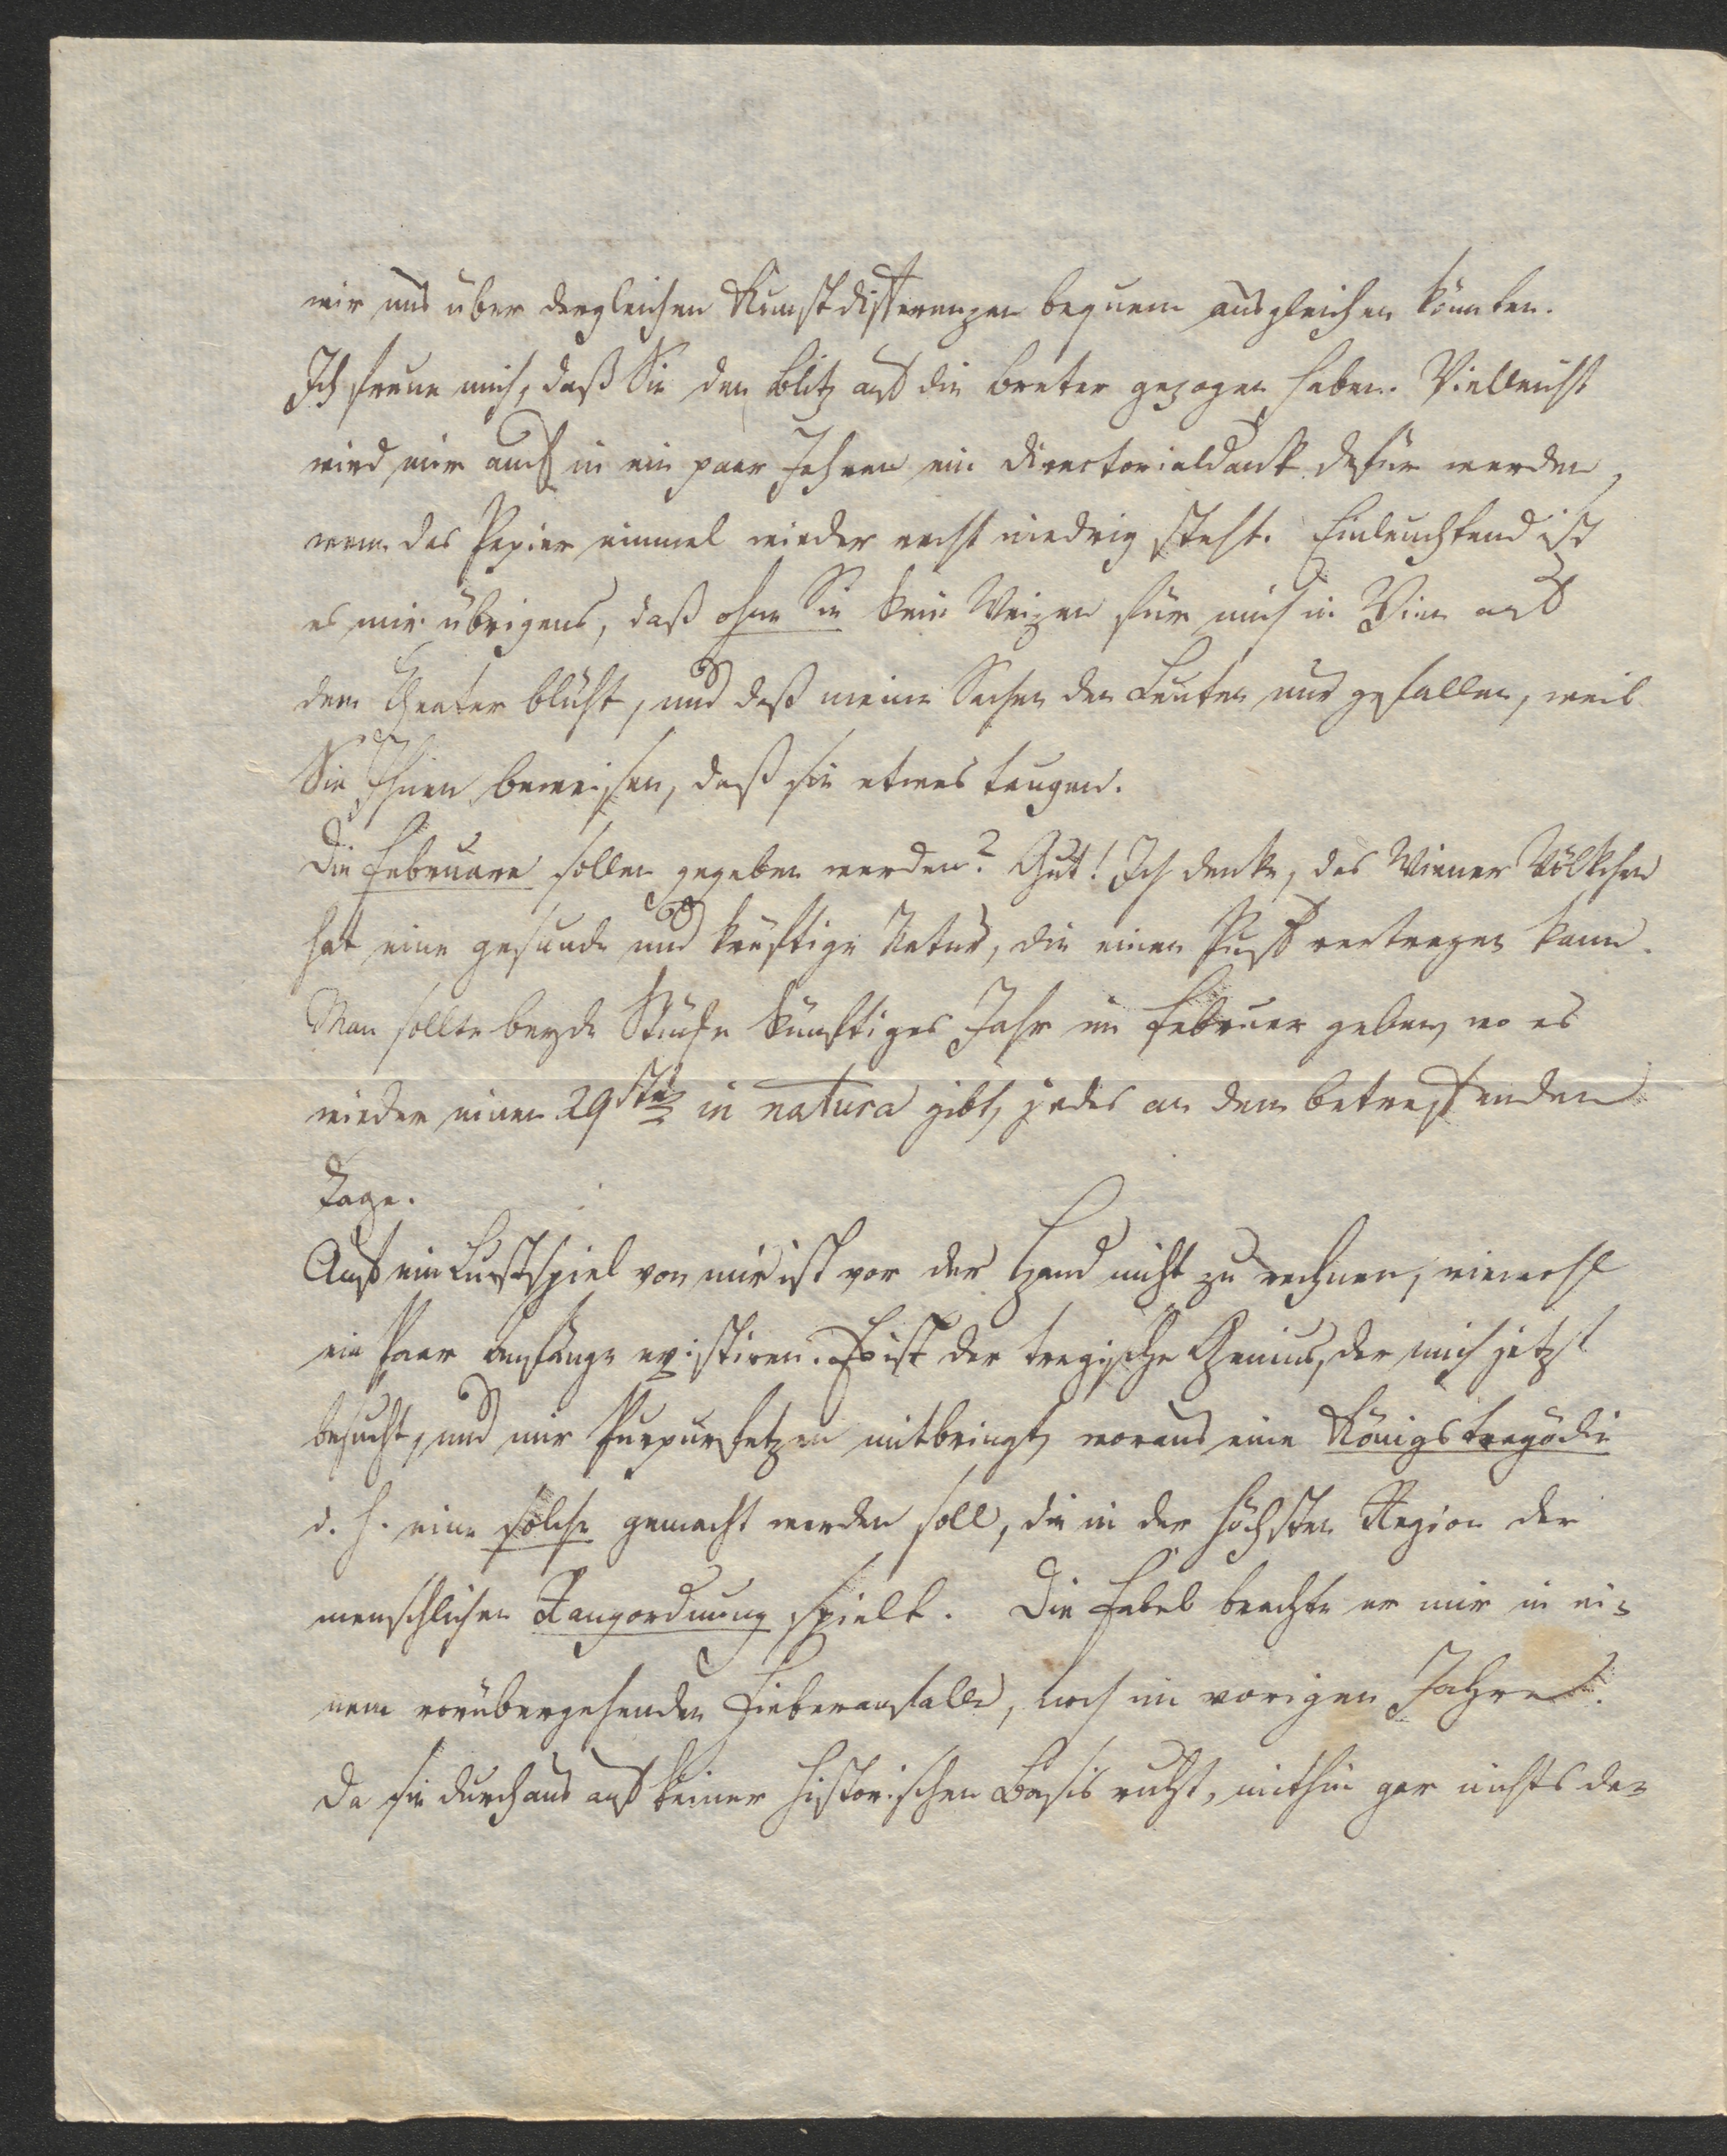 wir uns über dergleichen Kunstdifferenzen bequem ausgleichen könnten.
Ich freue mich, daß Sie den Blitz auf die Breter gezogen haben. Vielleicht
wird mir auch in ein paar Jahren ein Directorialdank dafür werden,
wenn das Papier einmal wieder recht niedrig steht. Einleuchtend ist
es mir übrigens, daß ohne Sie kein Weizen für mich in Wien auf
dem Theater blüht, und daß meine Sachen den Leuten nur gefallen, weil
Sie Ihnen beweisen, daß sie etwas taugen.
Die Februare sollen gegeben werden? Gut! Ich denke, das Wiener Völkchen
hat eine gesunde und kräftige Natur, die einen Puff vertragen kann.
Man sollte beyde Stücke künftiges Jahr im Februar geben, wo es
wieder einen 29sten in natura gibt, jedes an dem betreffenden
Tage.
Auf ein Lustspiel von mir ist vor der Hand nicht zu rechnen, wiewohl
ein Paar Anfänge existiren. Es ist der tragische Genius, der mich jetzt
besucht, und mir Purpurfetzen mitbringt, woraus eine Königstragödie
d. h. eine solche gemacht werden soll, die in der höchsten Region der
menschlichen Rangordnung spielt. Die Fabel brachte er mir in ei-
nem vorübergehenden Fieberanfalle, noch im vorigen Jahre.
Da sie durchaus auf keiner historischen Basis ruht, mithin gar nichts da-